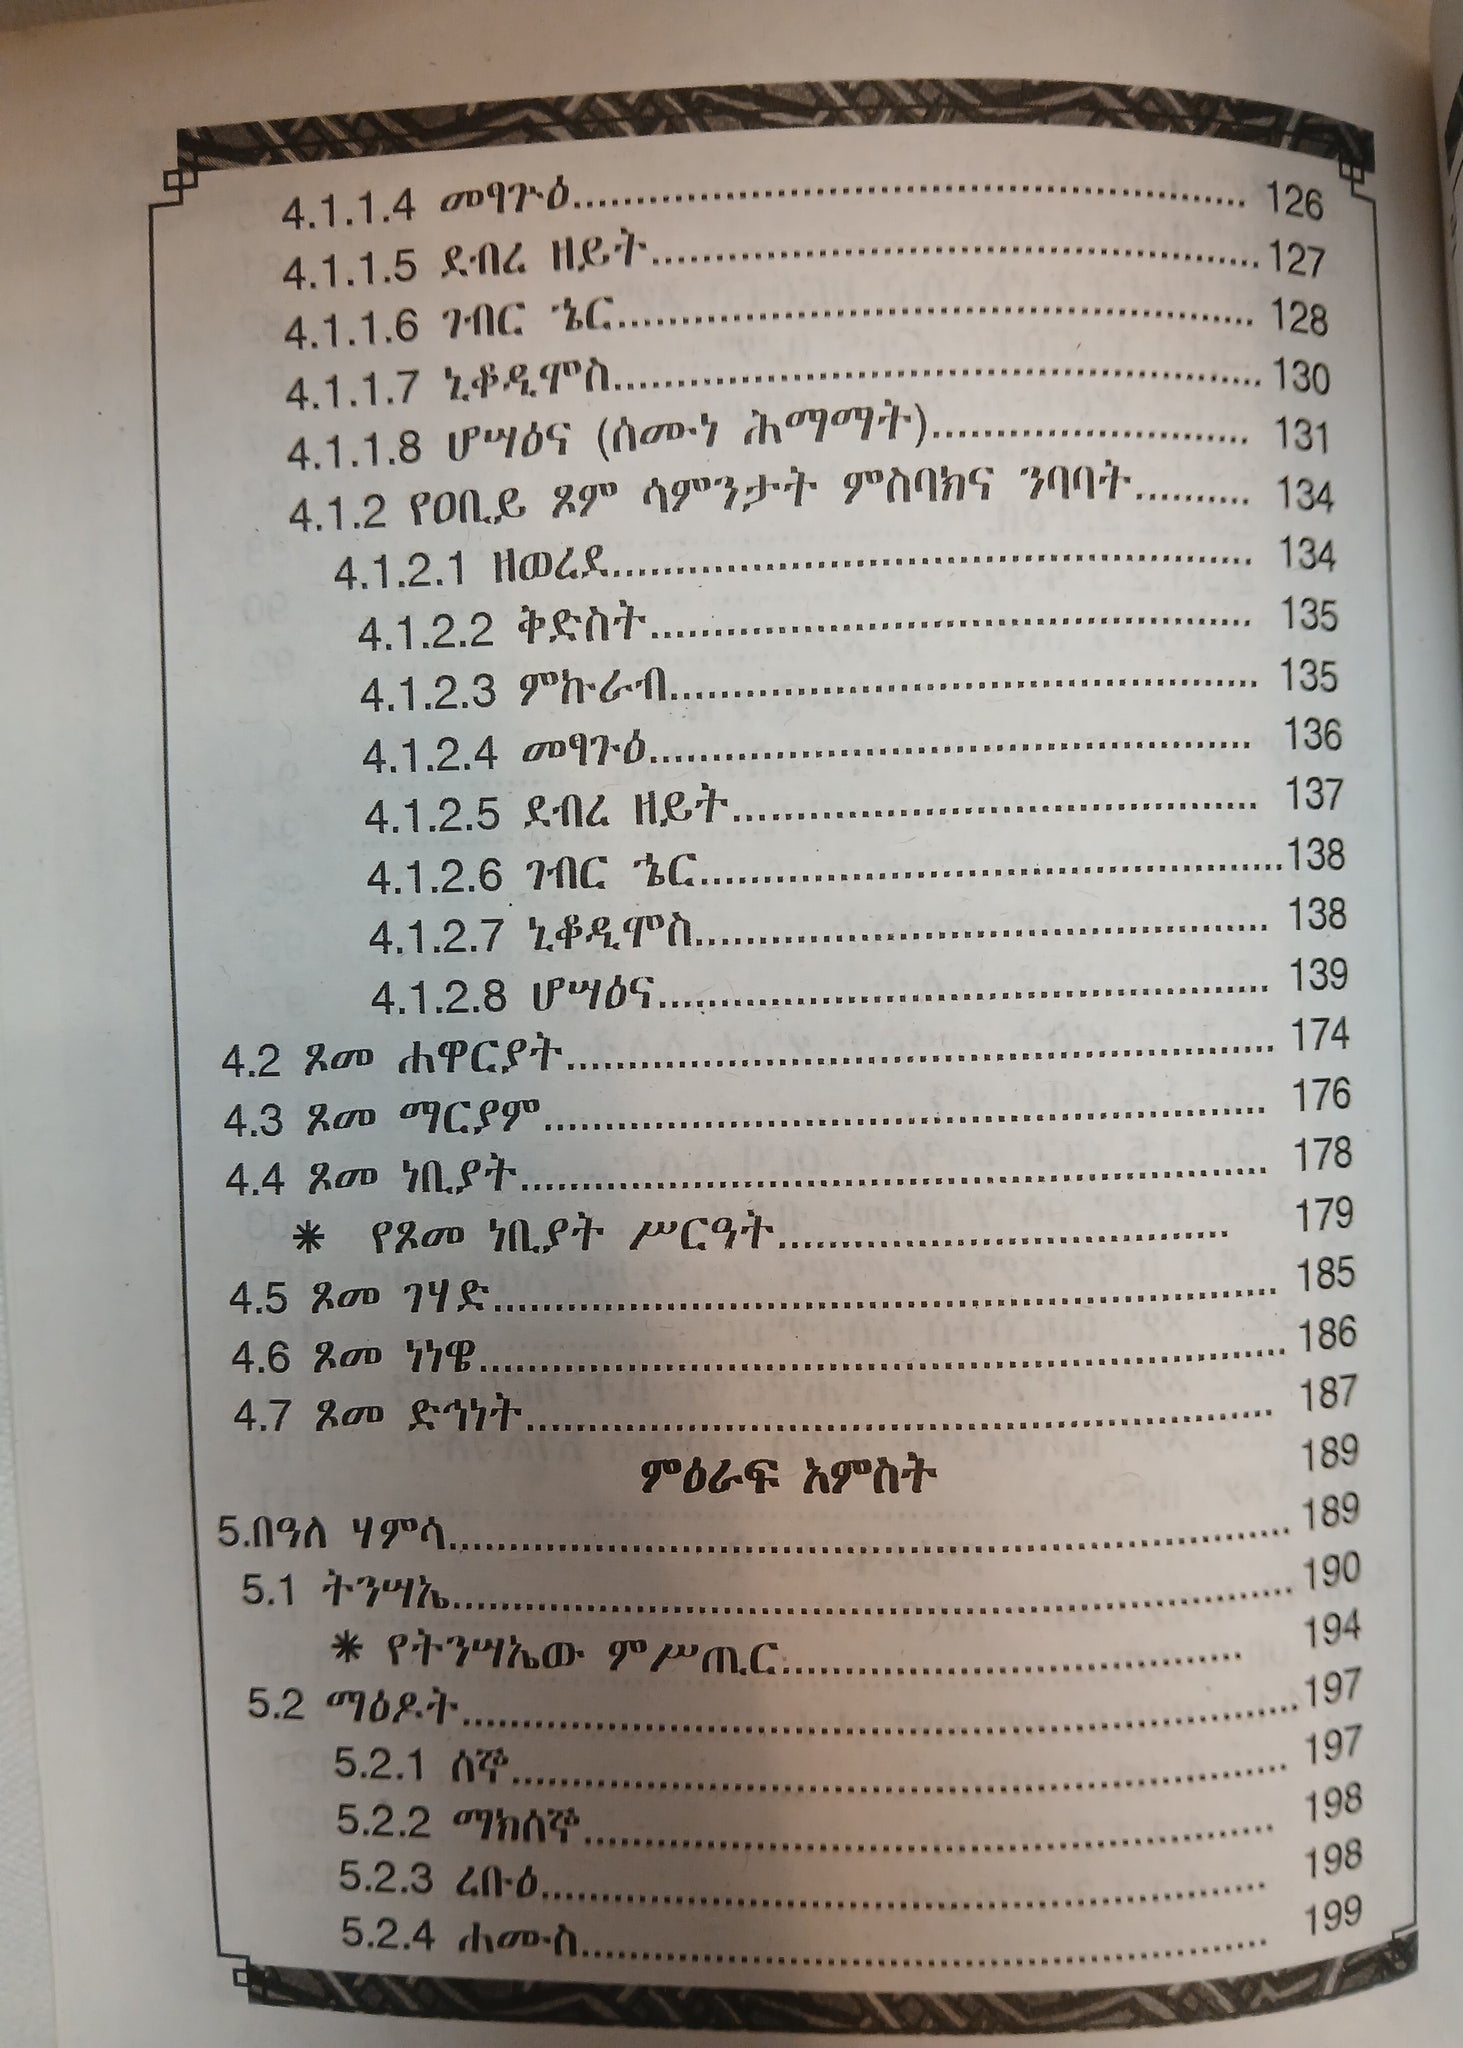 4.1.1.4 መፃጉዕ........................................................ 126
4.1.1.5 ደብረ ዘይት..................................................127
4.1.1.6 ገብር ኄር.................................................... 128
4.1.1.7 ኒቆዲሞስ.....................................................130
4.1.1.8 ሆሣዕና (ሰሙነ ሕማማት).......................... 131
4.1.2 የዐቢይ ጾም ሳምንታት ምስባክና ንባባት.......... 134
4.1.2.1 ዘወረደ..................................................... 134
4.1.2.2 ቅድስት................................................. 135
4.1.2.3 ምኩራብ................................................ 135
4.1.2.4 መፃጉዕ................................................. 136
4.1.2.5 ደብረ ዘይት........................................... 137
4.1.2.6 ገብር ኄር................................................138
4.1.2.7 ኒቆዲሞስ............................................... 138
4.1.2.8 ሆሣዕና.................................................. 139
4.2 ጾመ ሐዋርያት........................................................... 174
4.3 ጾመ ማርያም............................................................ 176
4.4 ጾመ ነቢያት.............................................................. 178
✳ የጾመ ነቢያት ሥርዓት..................................... 179
4.5 ጾመ ገሃድ................................................................. 185
4.6 ጾመ ነነዌ................................................................... 186
4.7 ጾመ ድኅነት.............................................................. 187
ምዕራፍ አምስት 189
5.በዓለ ሃምሳ...................................................................... 189
5.1 ትንሣኤ..................................................................... 190
✳ የትንሣኤው ምሥጢር...................................... 194
5.2 ማዕዶት.....................................................................197
5.2.1 ሰኞ................................................................ 197
5.2.2 ማክሰኞ......................................................... 198
5.2.3 ረቡዕ............................................................ 198
5.2.4 ሐሙስ......................................................... 199